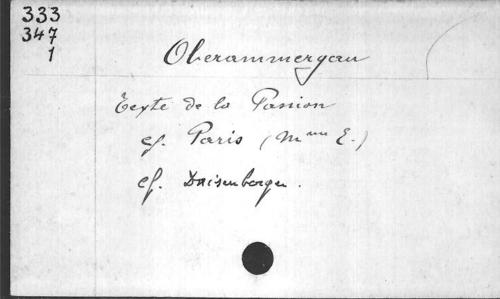 333
347
1
Oberammergau
Texte de la Passion
cf. Paris (Mme E.)
cf. Daisenberger.